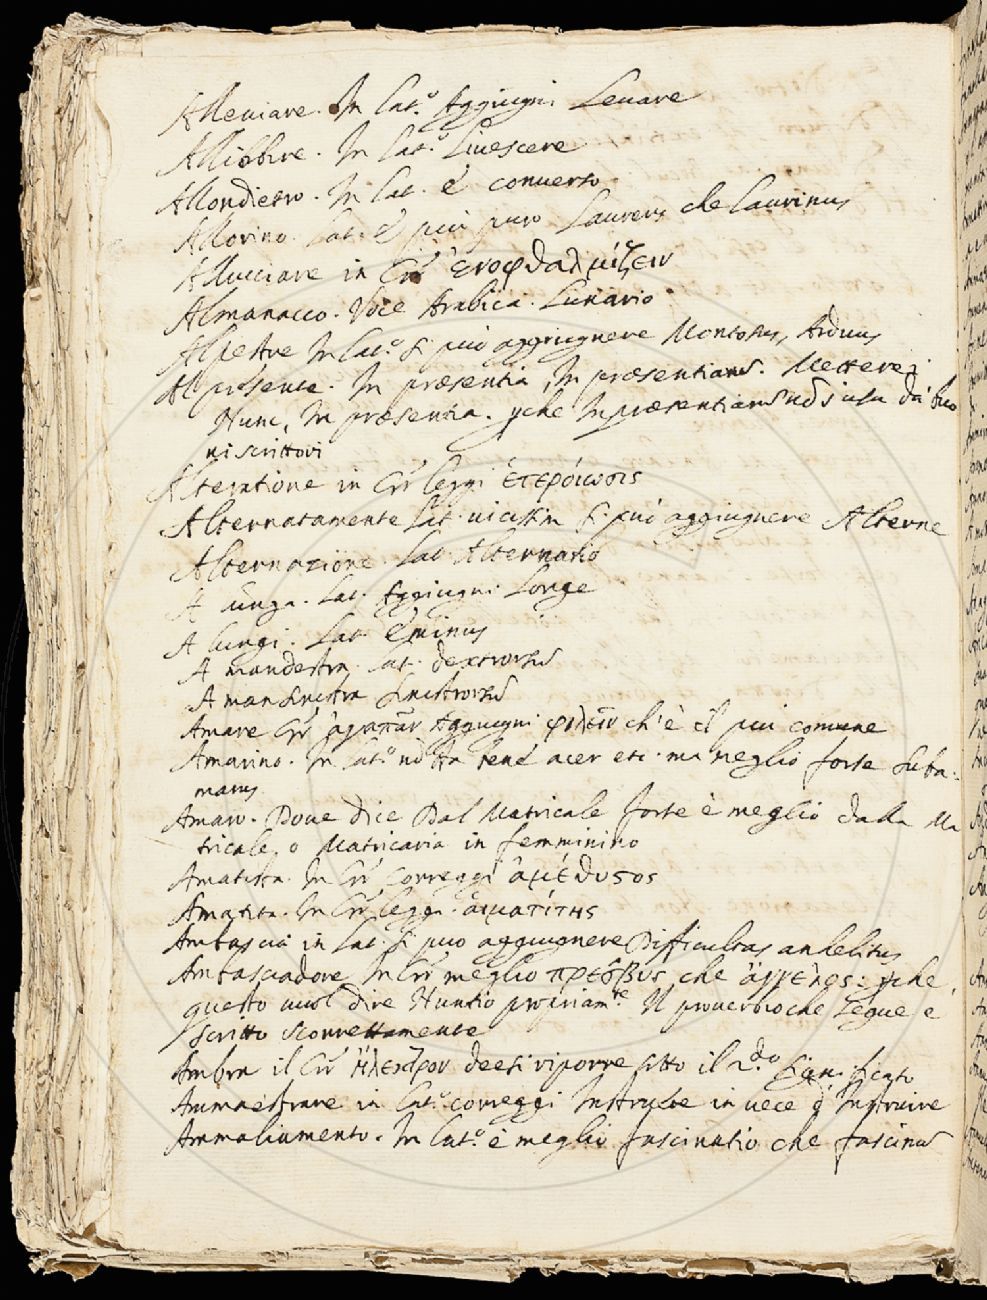 Alleviare. In lat.º Aggiugni Levare
Allibbire. In lat.º Livescere
Allondietro. In lat. è converso
Allorino. Lat. è più puro Laureus che Laurinus
Allucciare in Gr. ἐνοφθαλμίζειν
Almanacco. Voce Arabica. Lunario
Alpestre In lat.º si può aggiugnere Montosus, Arduus
Al presente. In præsentia, In præsentiarum. Mettere:
Nunc, In præsentia. perche Inpræsentiarum nõ s'usa da' buo
ni scrittori
Alteratione in Gr. leggi ἑτερόιωσις
Alternatamente Lat. vicissim si può aggiugnere Alterne
Alternazione. Lat. Alternatio
A lunga. Lat. Aggiugni Longe
A lungi. Lat. Eminus
A mandestra. Lat. dextrorsum
A mansinistra sinistrorsum
Amare Gr. ἀγαπᾶν Aggiugni φιλεῖν ch'è il più comune
Amarino. In lat.º nõ sta bene acer etc. ma meglio forse suba-
marus
Amaro. Dove dice Dal Matricale forse è meglio dalla Ma
tricale, o Matricaria in femminino
Amatista. In Gr. correggi ἀμέθυστος
Amatita. In Gr. leggi. ἁιματίτης
Ambascia in lat. si può aggiugnere Difficultas anhelitus
Ambasciadore In Gr. meglio πρέσβυς che ἄγγελος: perche
questo vuol dire Nuntio propriam.te Il proverbio che segue è
scritto scorrettamente
Ambra il Gr. ἤλεκτρον deesi riporre sotto il 2.do significato
Ammaestrare in lat.º correggi Instruere in vece d' Instruire
Ammaliamento. In lat.º è meglio fascinatio che fascinum